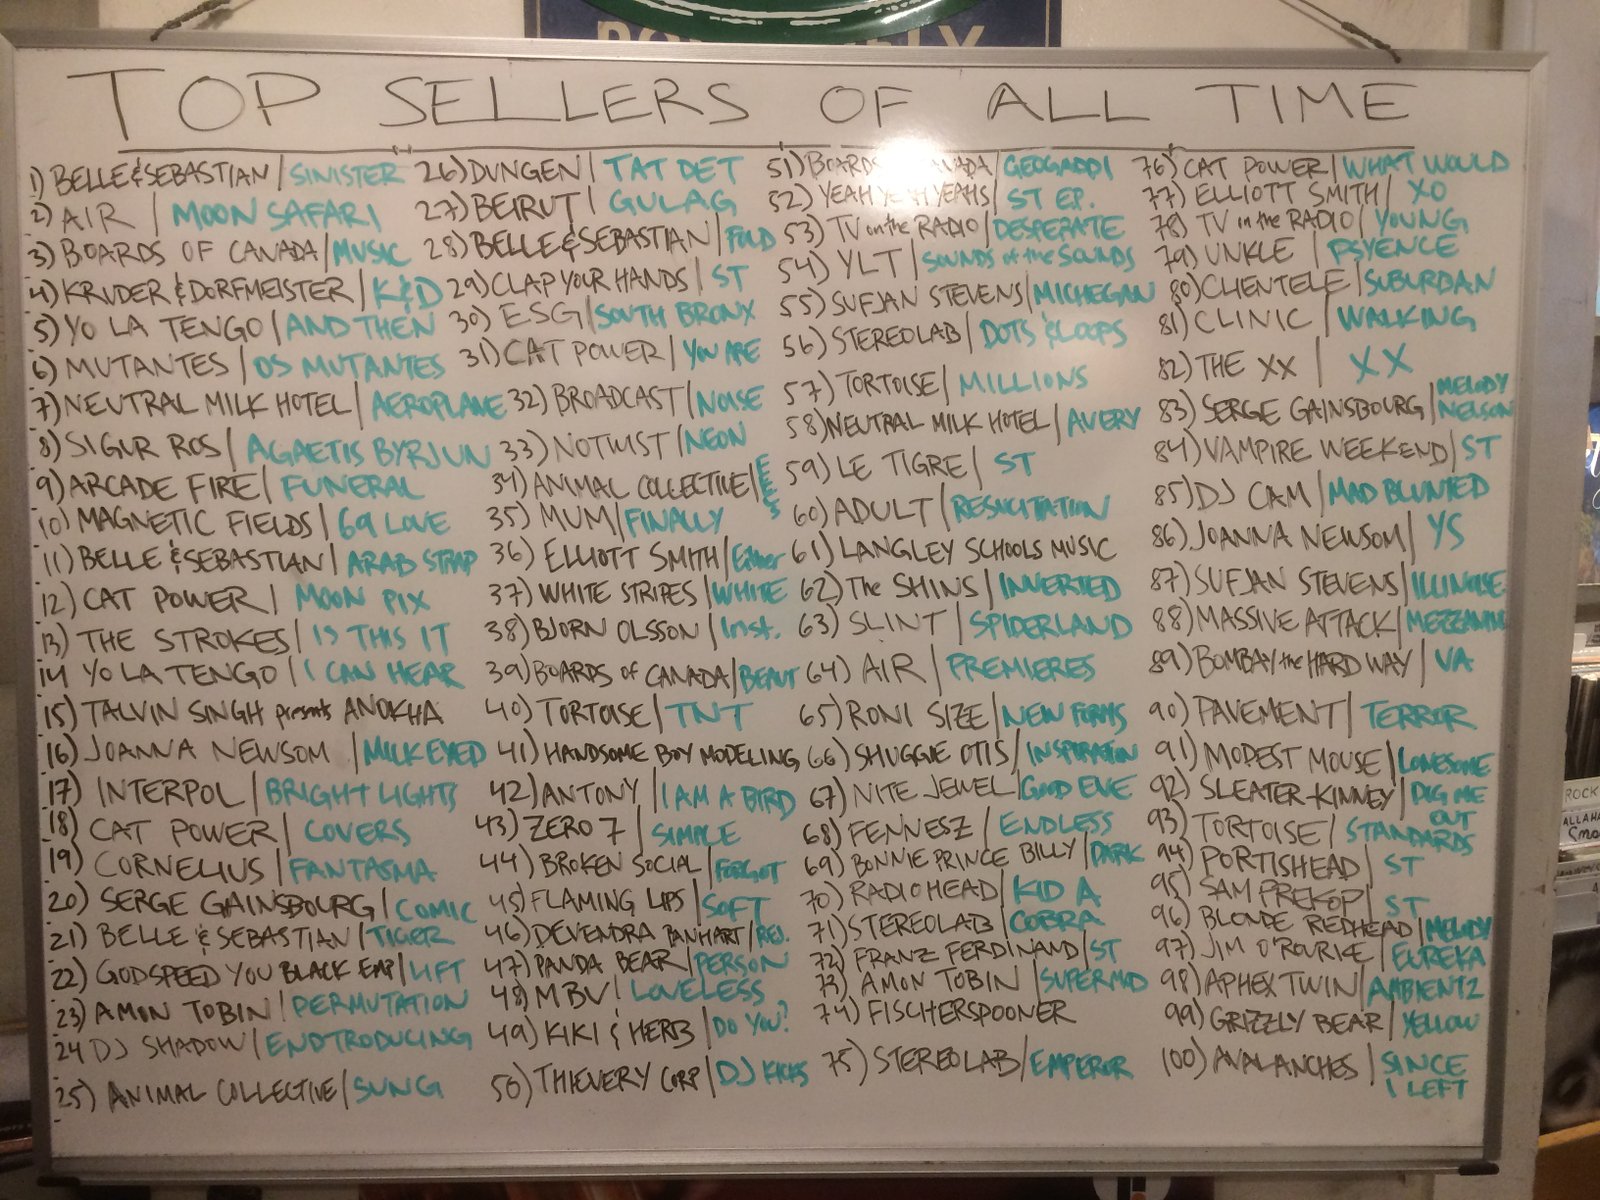 TOP SELLERS OF ALL TIME
1) BELLE & SEBASTIAN / SINISTER
2) AIR / MOON SAFARI
3) BOARDS OF CANADA / MUSIC
4) KRUDER & DORFMEISTER / K&D
5) YO LA TENGO / AND THEN
6) MUTANTES / OS MUTANTES
7) NEUTRAL MILK HOTEL / AEROPLANE
8) SIGUR ROS / AGAETIS BYRJUN
9) ARCADE FIRE / FUNERAL
10) MAGNETIC FIELDS / 69 LOVE
11) BELLE & SEBASTIAN / ARAB STRAP
12) CAT POWER / MOON PIX
13) THE STROKES / IS THIS IT
14 YO LA TENGO / I CAN HEAR
15) TALVIN SINGH presents ANOKHA
16) JOANNA NEWSOM / MILK EYED
17) INTERPOL / BRIGHT LIGHTS
18) CAT POWER / COVERS
19) CORNELIUS / FANTASMA
20) SERGE GAINSBOURG / COMIC
21) BELLE & SEBASTIAN / TIGER
22) GODSPEED YOU BLACK EMP / LIFT
23) AMON TOBIN / PERMUTATION
24 DJ SHADOW / ENDTRODUCING
25) ANIMAL COLLECTIVE / SUNG
26) DUNGEN / TAT DET
27) BEIRUT / GULAG
28) BELLE & SEBASTIAN / FOLD
29) CLAP YOUR HANDS / ST
30) ESG / SOUTH BRONX
31) CAT POWER / YOU ARE
32) BROADCAST / NOISE
33) NOTWIST / NEON
34) ANIMAL COLLECTIVE /
35) MUM / FINALLY
36) ELLIOTT SMITH / Either
37) WHITE STRIPES / WHITE
38) BJORN OLSSON / Inst.
39) BOARDS OF CANADA / BEAUT
40) TORTOISE / TNT
41) HANDSOME BOY MODELING
42) ANTONY / I AM A BIRD
43) ZERO 7 / SIMPLE
44) BROKEN SOCIAL / FORGOT
45) FLAMING LIPS / SOFT
46) DEVENDRA BANHART / REJ.
47) PANDA BEAR / PERSON
48) MBV / LOVELESS
49) KIKI & HERB / DO YOU?
50) THIEVERY CORP / DJ KICKS
51) BOARDS CANADA / GEOGADDI
52) YEAH YEAH YEAHS / ST EP.
53) TV on the RADIO / DESPERATE
54) YLT / SOUNDS of the SOUNDS
55) SUFJAN STEVENS / MICHEGAN
56) STEREOLAB / DOTS & LOOPS
57) TORTOISE / MILLIONS
58) NEUTRAL MILK HOTEL / AVERY
59) LE TIGRE / ST
60) ADULT / RESUCITATION
61) LANGLEY SCHOOLS MUSIC
62) The SHINS / INVERTED
63) SLINT / SPIDERLAND
64) AIR / PREMIERES
65) RONI SIZE / NEW FORMS
66) SHUGGIE OTIS / INSPIRATION
67) NITE JEWEL / GOOD EVE
68) FENNESZ / ENDLESS
69) BONNIE PRINCE BILLY / DARK
70) RADIOHEAD / KID A
71) STEREOLAB / COBRA
72) FRANZ FERDINAND / ST
73) AMON TOBIN / SUPERMOD
74) FISCHERSPOONER
75) STEREOLAB / EMPEROR
76) CAT POWER / WHAT WOULD
77) ELLIOTT SMITH / XO
78) TV in the RADIO / YOUNG
79) UNKLE / PSYENCE
80) CLIENTELE / SUBURBAN
81) CLINIC / WALKING
82) THE XX / XX
83) SERGE GAINSBOURG / MELODY NELSON
84) VAMPIRE WEEKEND / ST
85) DJ CAM / MAD BLUNTED
86) JOANNA NEWSOM / YS
87) SUFJAN STEVENS / ILLINOISE
88) MASSIVE ATTACK / MEZZANINE
89) BOMBAY the HARD WAY / VA
90) PAVEMENT / TERROR
91) MODEST MOUSE / LONESOME
92) SLEATER-KINNEY / DIG ME OUT
93) TORTOISE / STANDARDS
94) PORTISHEAD / ST
95) SAM PREKOP / ST
96) BLONDE REDHEAD / MELODY
97) JIM O'ROURKE / EUREKA
98) APHEX TWIN / AMBIENT 2
99) GRIZZLY BEAR / YELLOW
100) AVALANCHES / SINCE I LEFT
ROCK